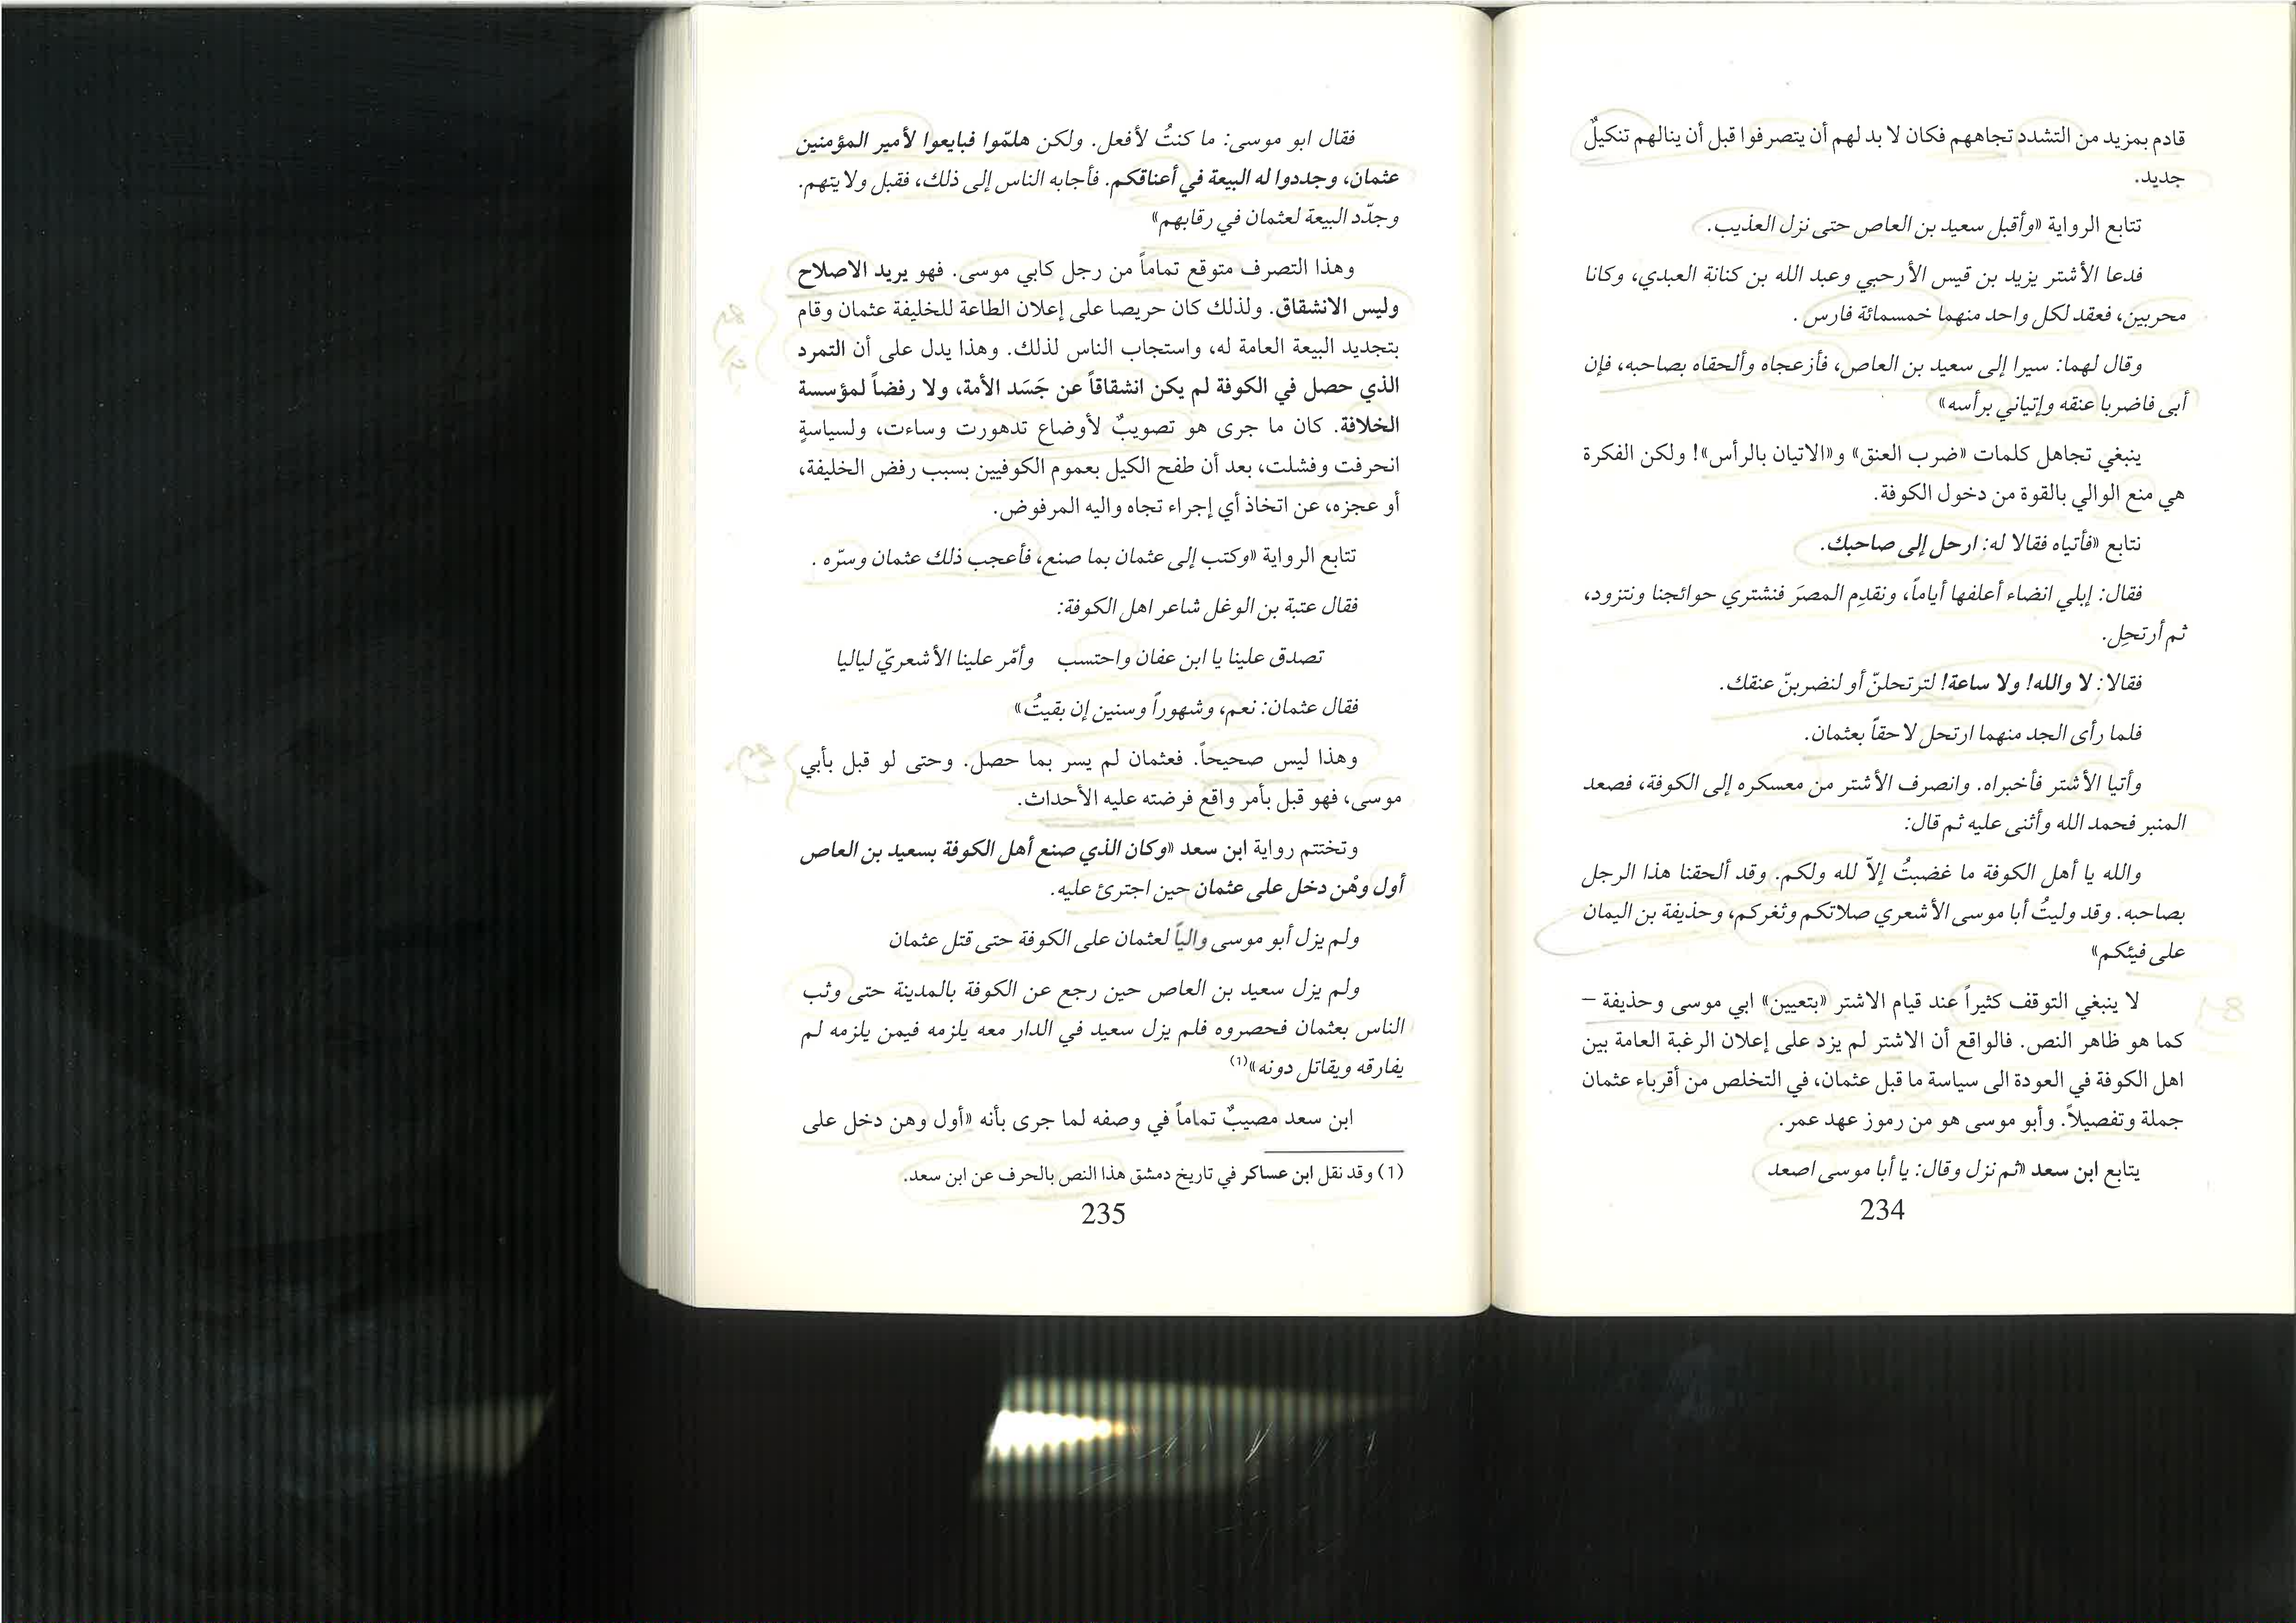 قادم بمزيد من التشدد تجاههم فكان لا بد لهم أن يتصرفوا قبل أن ينالهم تنكيلٌ
جديد.
تتابع الرواية «وأقبل سعيد بن العاص حتى نزل العذيب.
فدعا الأشتر يزيد بن قيس الأرحبي وعبد الله بن كنانة العبدي، وكانا
محربين، فعقد لكل واحد منهما خمسمائة فارس .
وقال لهما: سيرا إلى سعيد بن العاص، فأزعجاه وألحقاه بصاحبه، فإن
أبى فاضربا عنقه وإتياني برأسه»
ينبغي تجاهل كلمات «ضرب العنق» و«الاتيان بالرأس»! ولكن الفكرة
هي منع الوالي بالقوة من دخول الكوفة.
نتابع «فأتياه فقالا له: ارحل إلى صاحبك.
فقال: إبلي انضاء أعلفها أياماً، ونقدِم المصرَ فنشتري حوائجنا ونتزود،
ثم أرتحِل.
فقالا: لا والله! ولا ساعة! لترتحلنّ أو لنضربنّ عنقك.
فلما رأى الجد منهما ارتحل لاحقاً بعثمان.
وأتيا الأشتر فأخبراه. وانصرف الأشتر من معسكره إلى الكوفة، فصعد
المنبر فحمد الله وأثنى عليه ثم قال:
والله يا أهل الكوفة ما غضبتُ إلاّ لله ولكم. وقد ألحقنا هذا الرجل
بصاحبه. وقد وليتُ أبا موسى الأشعري صلاتكم وثغركم، وحذيفة بن اليمان
على فيئكم»
لا ينبغي التوقف كثيراً عند قيام الاشتر «بتعيين» ابي موسى وحذيفة –
كما هو ظاهر النص. فالواقع أن الاشتر لم يزد على إعلان الرغبة العامة بين
اهل الكوفة في العودة الى سياسة ما قبل عثمان، في التخلص من أقرباء عثمان
جملة وتفصيلاً. وأبو موسى هو من رموز عهد عمر.
يتابع ابن سعد «ثم نزل وقال: يا أبا موسى اصعد
234
فقال ابو موسى: ما كنتُ لأفعل. ولكن هلمّوا فبايعوا لأمير المؤمنين
عثمان، وجددوا له البيعة في أعناقكم. فأجابه الناس إلى ذلك، فقبل ولايتهم.
وجدّد البيعة لعثمان في رقابهم»
وهذا التصرف متوقع تماماً من رجل كابي موسى. فهو يريد الاصلاح
وليس الانشقاق. ولذلك كان حريصا على إعلان الطاعة للخليفة عثمان وقام
بتجديد البيعة العامة له، واستجاب الناس لذلك. وهذا يدل على أن التمرد
الذي حصل في الكوفة لم يكن انشقاقاً عن جَسَد الأمة، ولا رفضاً لمؤسسة
الخلافة. كان ما جرى هو تصويبٌ لأوضاع تدهورت وساءت، ولسياسةٍ
انحرفت وفشلت، بعد أن طفح الكيل بعموم الكوفيين بسبب رفض الخليفة،
أو عجزه، عن اتخاذ أي إجراء تجاه واليه المرفوض.
تتابع الرواية «وكتب إلى عثمان بما صنع، فأعجب ذلك عثمان وسرّه .
فقال عتبة بن الوغل شاعر اهل الكوفة:
تصدق علينا يا ابن عفان واحتسب وأمّر علينا الأشعريّ لياليا
فقال عثمان: نعم، وشهوراً وسنين إن بقيتُ»
وهذا ليس صحيحاً. فعثمان لم يسر بما حصل. وحتى لو قبل بأبي
موسى، فهو قبل بأمر واقع فرضته عليه الأحداث.
وتختتم رواية ابن سعد «وكان الذي صنع أهل الكوفة بسعيد بن العاص
أول وهْن دخل على عثمان حين اجترئ عليه.
ولم يزل أبو موسى والياً لعثمان على الكوفة حتى قتل عثمان
ولم يزل سعيد بن العاص حين رجع عن الكوفة بالمدينة حتى وثب
الناس بعثمان فحصروه فلم يزل سعيد في الدار معه يلزمه فيمن يلزمه لم
يفارقه ويقاتل دونه»(1)
ابن سعد مصيبٌ تماماً في وصفه لما جرى بأنه «أول وهن دخل على
(1) وقد نقل ابن عساكر في تاريخ دمشق هذا النص بالحرف عن ابن سعد.
235